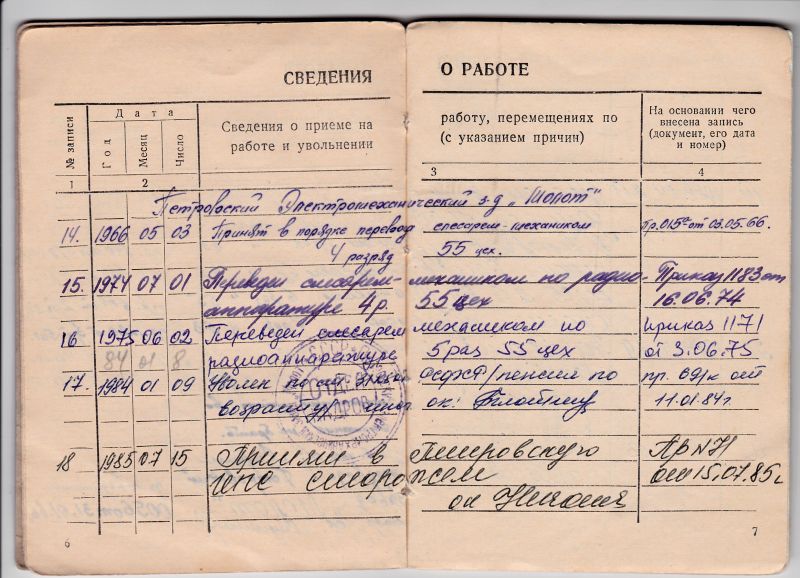 СВЕДЕНИЯ О РАБОТЕ
№ записи
Дата
Год
Месяц
Число
Сведения о приеме на
работе и увольнении
работу, перемещениях по
(с указанием причин)
На основании чего
внесена запись
(документ, его дата
и номер)
1 2 3 4
Петровский Электромеханический з-д „Молот"
14. 1966 05 03 Принят в порядке перевода слесарем-механиком Пр. 015а от 03.05.66.
4 разряд 55 цех.
15. 1974 07 01 Переведен слесарем- механиком по радио- Приказ 1183 от
аппаратуре 4 р. 55 цех 16.06.74
16 1975 06 02 Переведен слесарем механиком по приказ 1171
радиоаппаратуре 5 раз 55 цех от 3.06.75
17. 1984 01 09 Уволен по РСФСР/пенсии по пр. от
возрасту ок: 11.01.84г.
18 1985 07 15 Принят в Петровскую Пр №
сторожем от 15.07.85г
ок
6 7